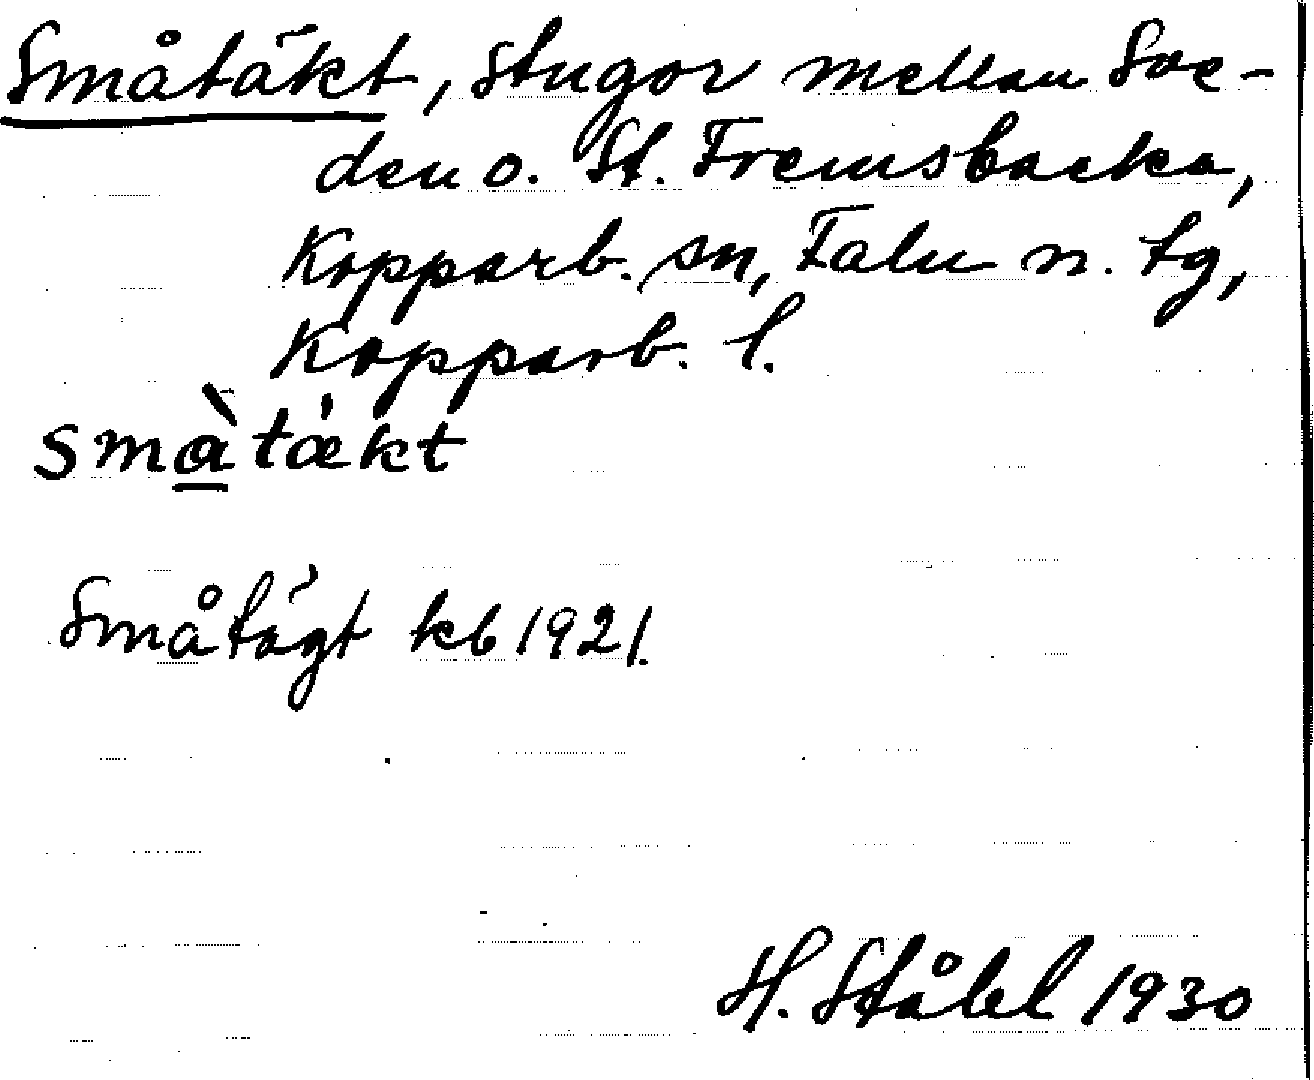 Småtäkt, stugor mellan Soe-
den o. St. Fremsbacka,
Kopparb. sn, Falu n. tg,
Kopparb. l.
småtäkt
Småtägt kb 1921.
H. Ståhl 1930